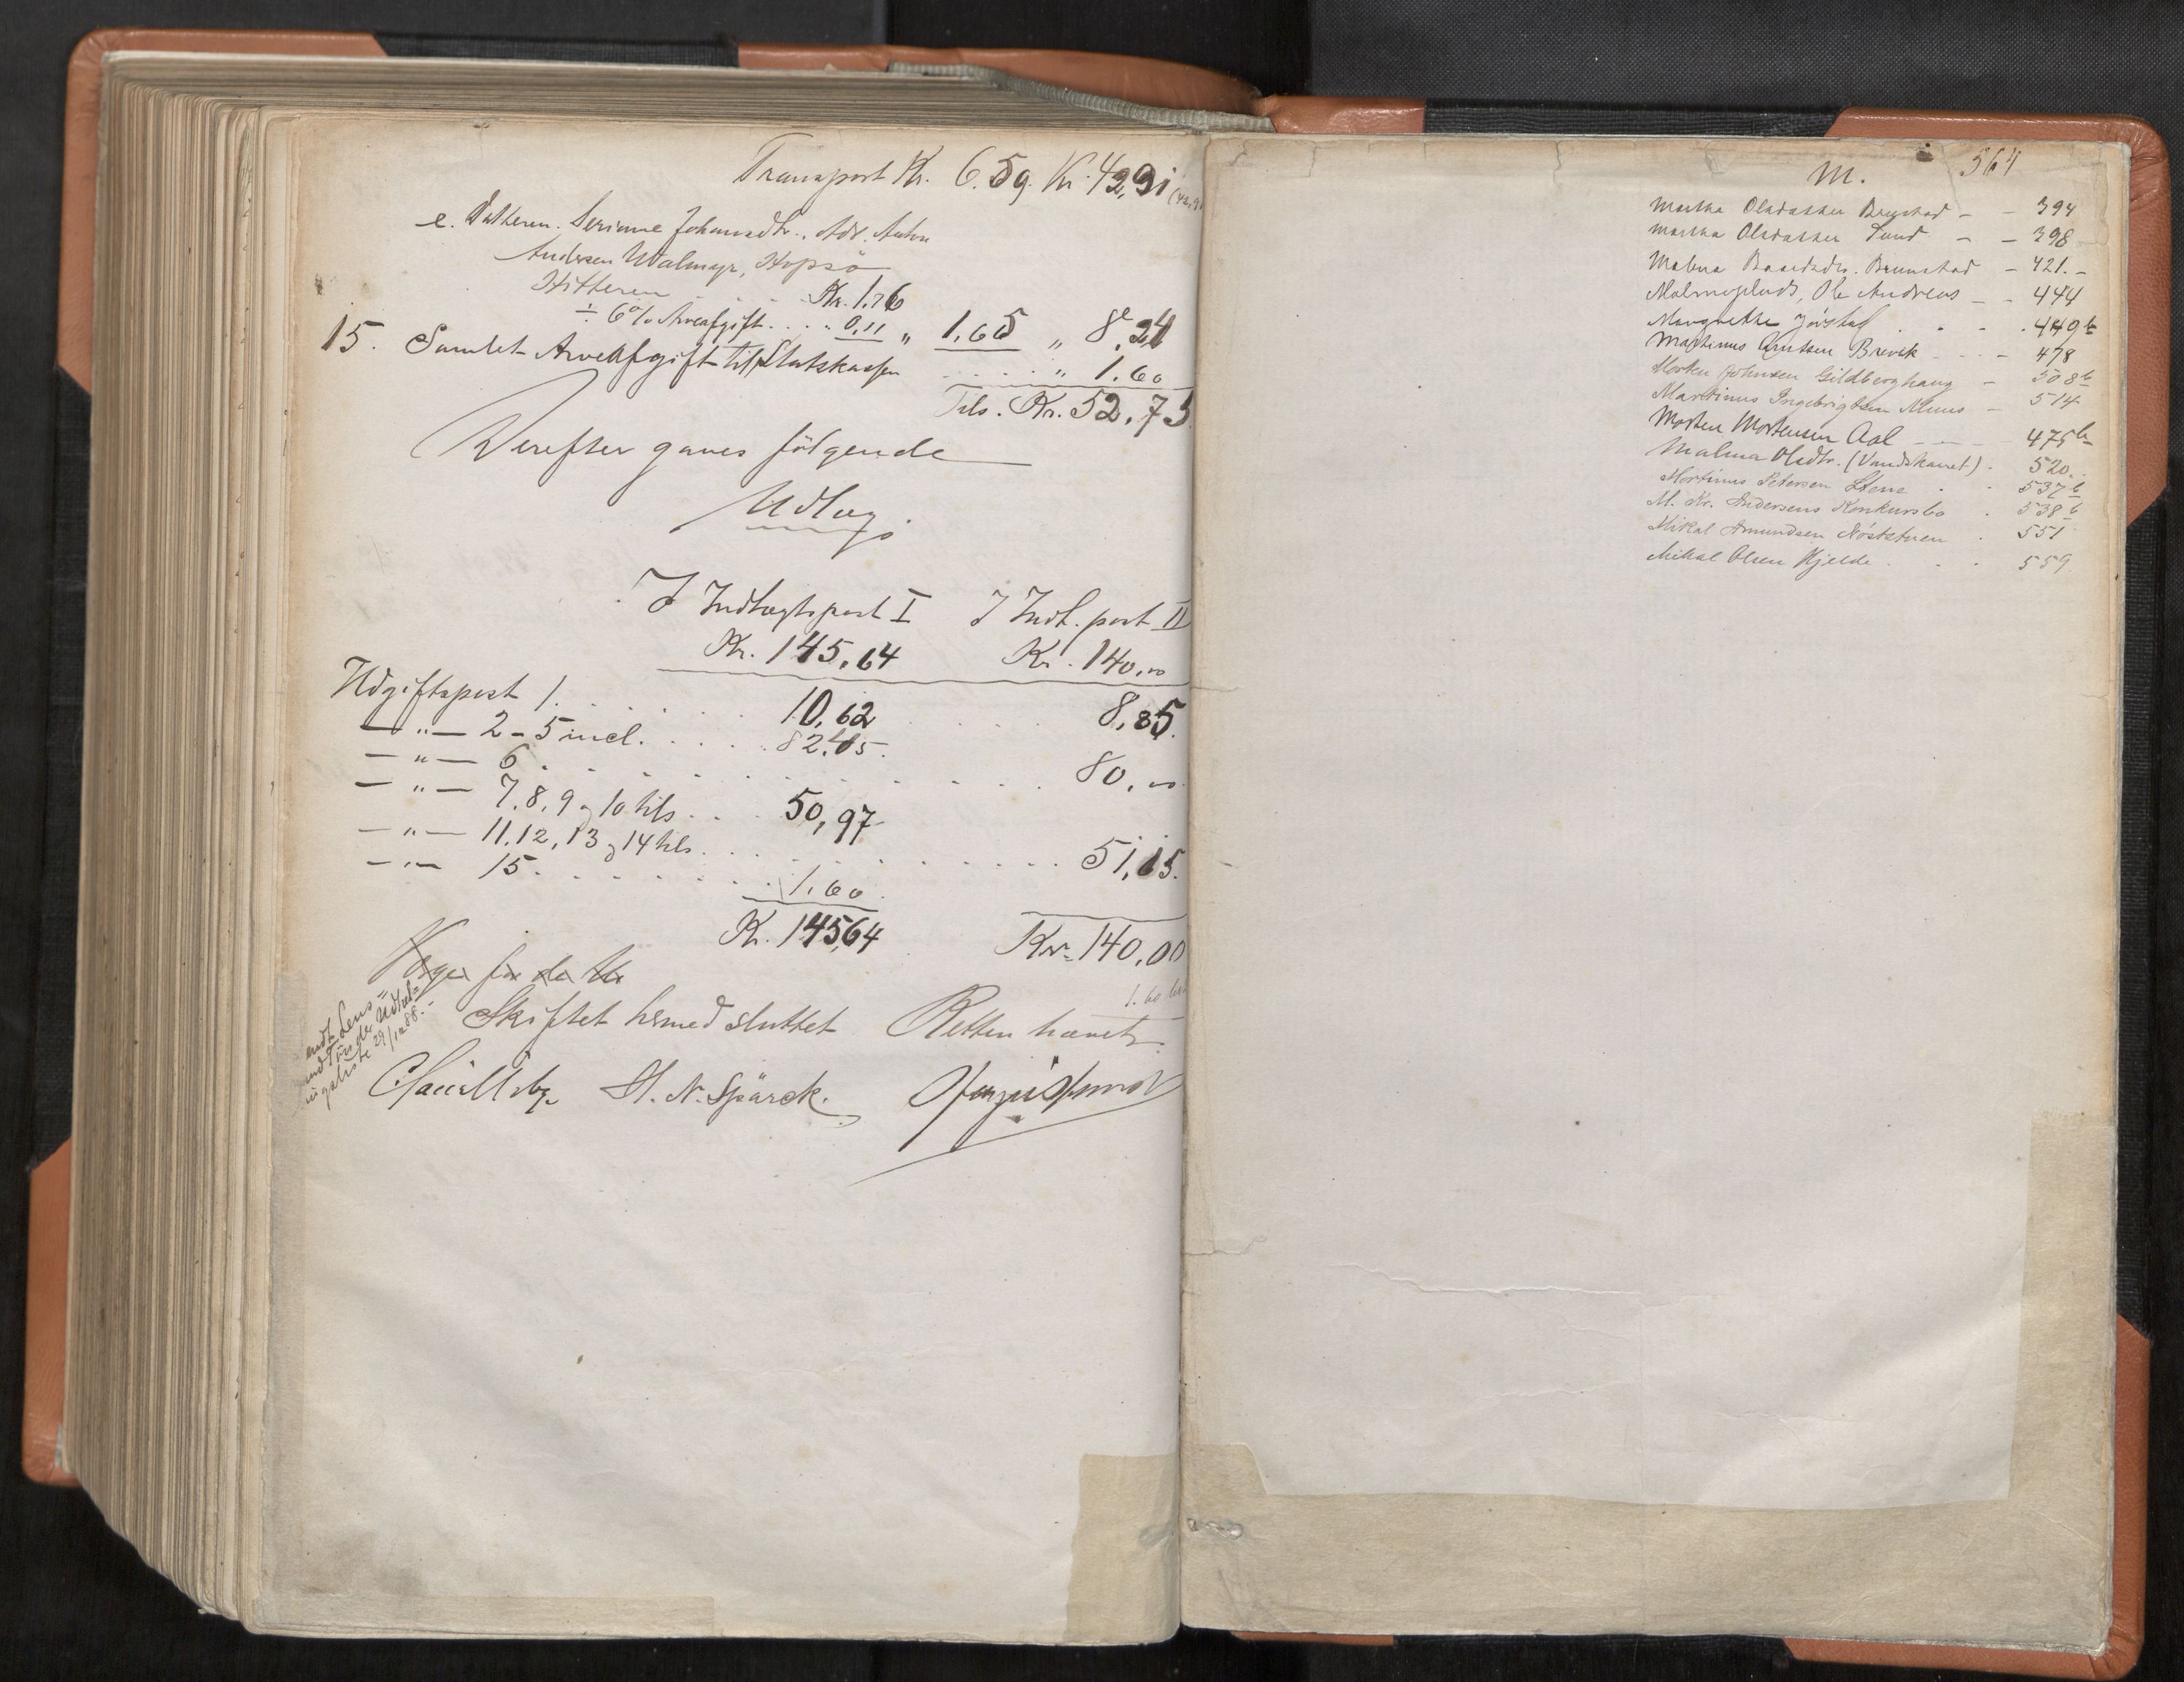 Transport Kr. 6.59. Kr. 42,91
e. Datteren Serianne Johansdtr., Adr. Anton
Andersen Ulalmyr, Hopsø
Hitteren . . . Kr. 1.76
÷ 6% Arveafgift . . . . 0,11 „ 1,65 „ 8,24
15. Samlet Arveafgift til Statskassen . . . . . „ 1.60
Tils. Kr. 52,75
Derefter gaves følgende
Udlæg.
I Indtægtspost I I Indt. post II
Kr. 145,64 Kr. 140,00
Udgiftspost 1. . . . . . . 10,62 . . . . 8,85.
— „ — 2-5 incl. . . . . . 82.45.
— „ — 6 . . . . . . . . . . . 80,00
— „ — 7,8,9 og 10 tils. . . . 50,97
— „ — 11,12,13 og 14 tils. . . . . . . . . . 51,15.
— „ — 15. . . . . . . . 1.60.
Kr. 145,64 Kr. 140,00
1.60
Skiftet hermed sluttet Retten hævet.
St. N. Spärck.
M. 564
Martha Olsdatter Bergstad - - 394
Martha Olsdatter Sund - - 398
Malena Baardsdtr. Brunstad - 421.-
Malmoplads, Ole Andreas - - 444
Margrethe Jørstad . . . . 449b
Martinus Arntsen Brevik - - - 478
Morten Johnsen Gildberghaug - 508b
Martinus Ingebrigtsen Muus - 514
Morten Mortensen Aal - - - 475b
Malena Olsdtr. (Vandskaret) . 520.
Mortinus Petersen Stene . . 537b
M. Kr. Andersens Konkursbo . 538b
Mikal Amundsen Nøststuen . 551
Mikal Olsen Hjelde . . . 559